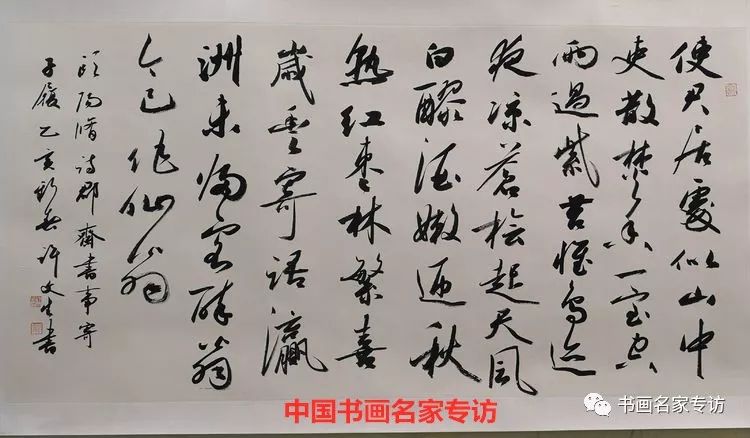 使君居處似山中
吏散焚香一室空
雨過紫苔惟鳥迹
夜凉蒼檜起天風
白醪酒嫩迎秋
熟紅棗林繁喜
歲豐寄語瀛
洲未歸客醉翁
今已作仙翁
歐陽脩詩郡齋書事寄
子履乙亥許文生書
中国书画名家专访
书画名家专访